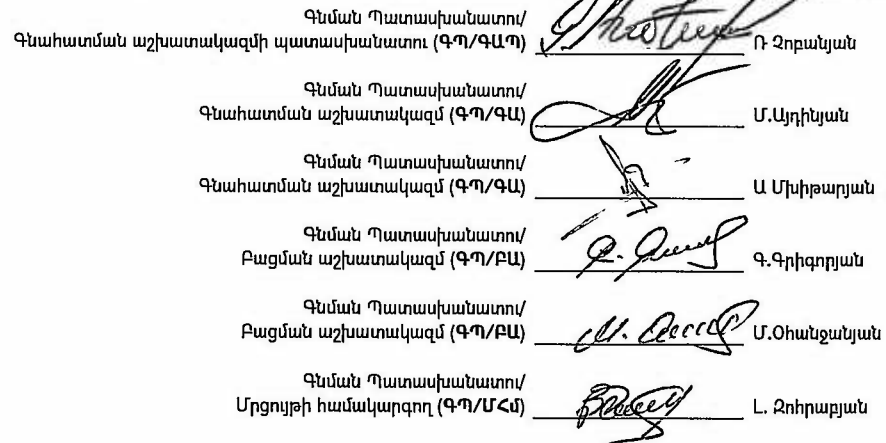 Գնման Պատասխանատու/
Գնահատման աշխատակազմի պատասխանատու (ԳՊ/ԳԱՊ) Ռ Չոբանյան
Գնման Պատասխանատու/
Գնահատման աշխատակազմ (ԳՊ/ԳԱ) Մ.Այդինյան
Գնման Պատասխանատու/
Գնահատման աշխատակազմ (ԳՊ/ԳԱ) Ա Մխիթարյան
Գնման Պատասխանատու/
Բացման աշխատակազմ (ԳՊ/ԲԱ) Գ.Գրիգորյան
Գնման Պատասխանատու/
Բացման աշխատակազմ (ԳՊ/ԲԱ) Մ.Օհանջանյան
Գնման Պատասխանատու/
Մրցույթի համակարգող (ԳՊ/ՄՀմ) Լ. Զոհրաբյան